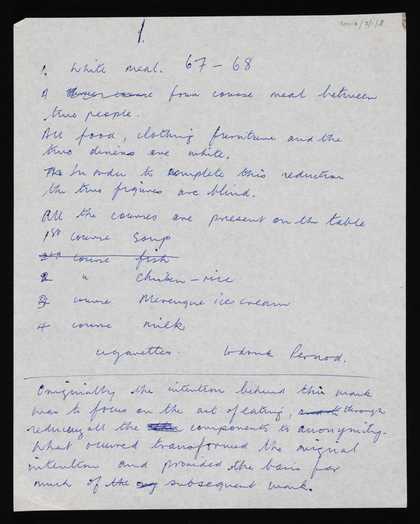 1.
1. White meal. 67 – 68
A four course meal between
two people.
All food, clothing furniture and the
two diners are white.
In order to complete this reduction
the two figures are blind.
All the courses are present on the table
1st course Soup
course fish
2 " Chicken – rice
3 course Merengue ice cream
4 course milk
cigarettes. to drink Pernod.
Originally the intention behind this work
was to focus on the act of eating, through
reducing all the components to anonymity.
What occured transformed the original
intention and provided the basis for
much of the subsequent work.